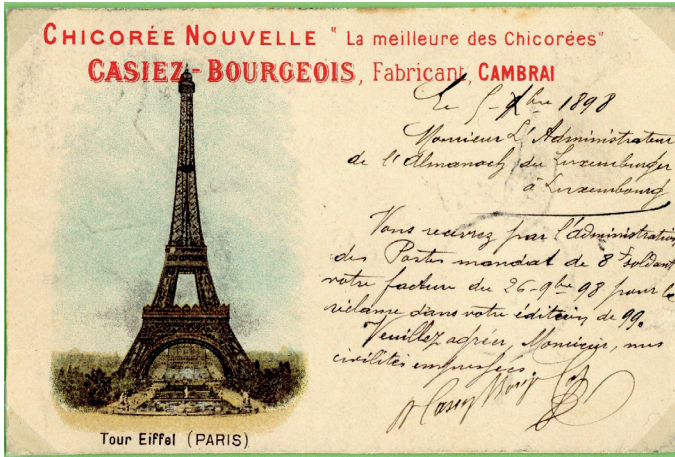 CHICORÉE NOUVELLE "La meilleure des Chicorées"
CASIEZ-BOURGEOIS, Fabricant, CAMBRAI
Le 5-Xbre 1898
Monsieur L'Administrateur
de l'Almanach du Luxemburger
à Luxembourg
Vous recevrez par l'administration
des Postes mandat de 8 f soldant
votre facture du 26-9bre 98 pour la
réclame dans votre édition de 99.
Veuillez agréer, Monsieur, mes
civilités empressées
Tour Eiffel (PARIS)